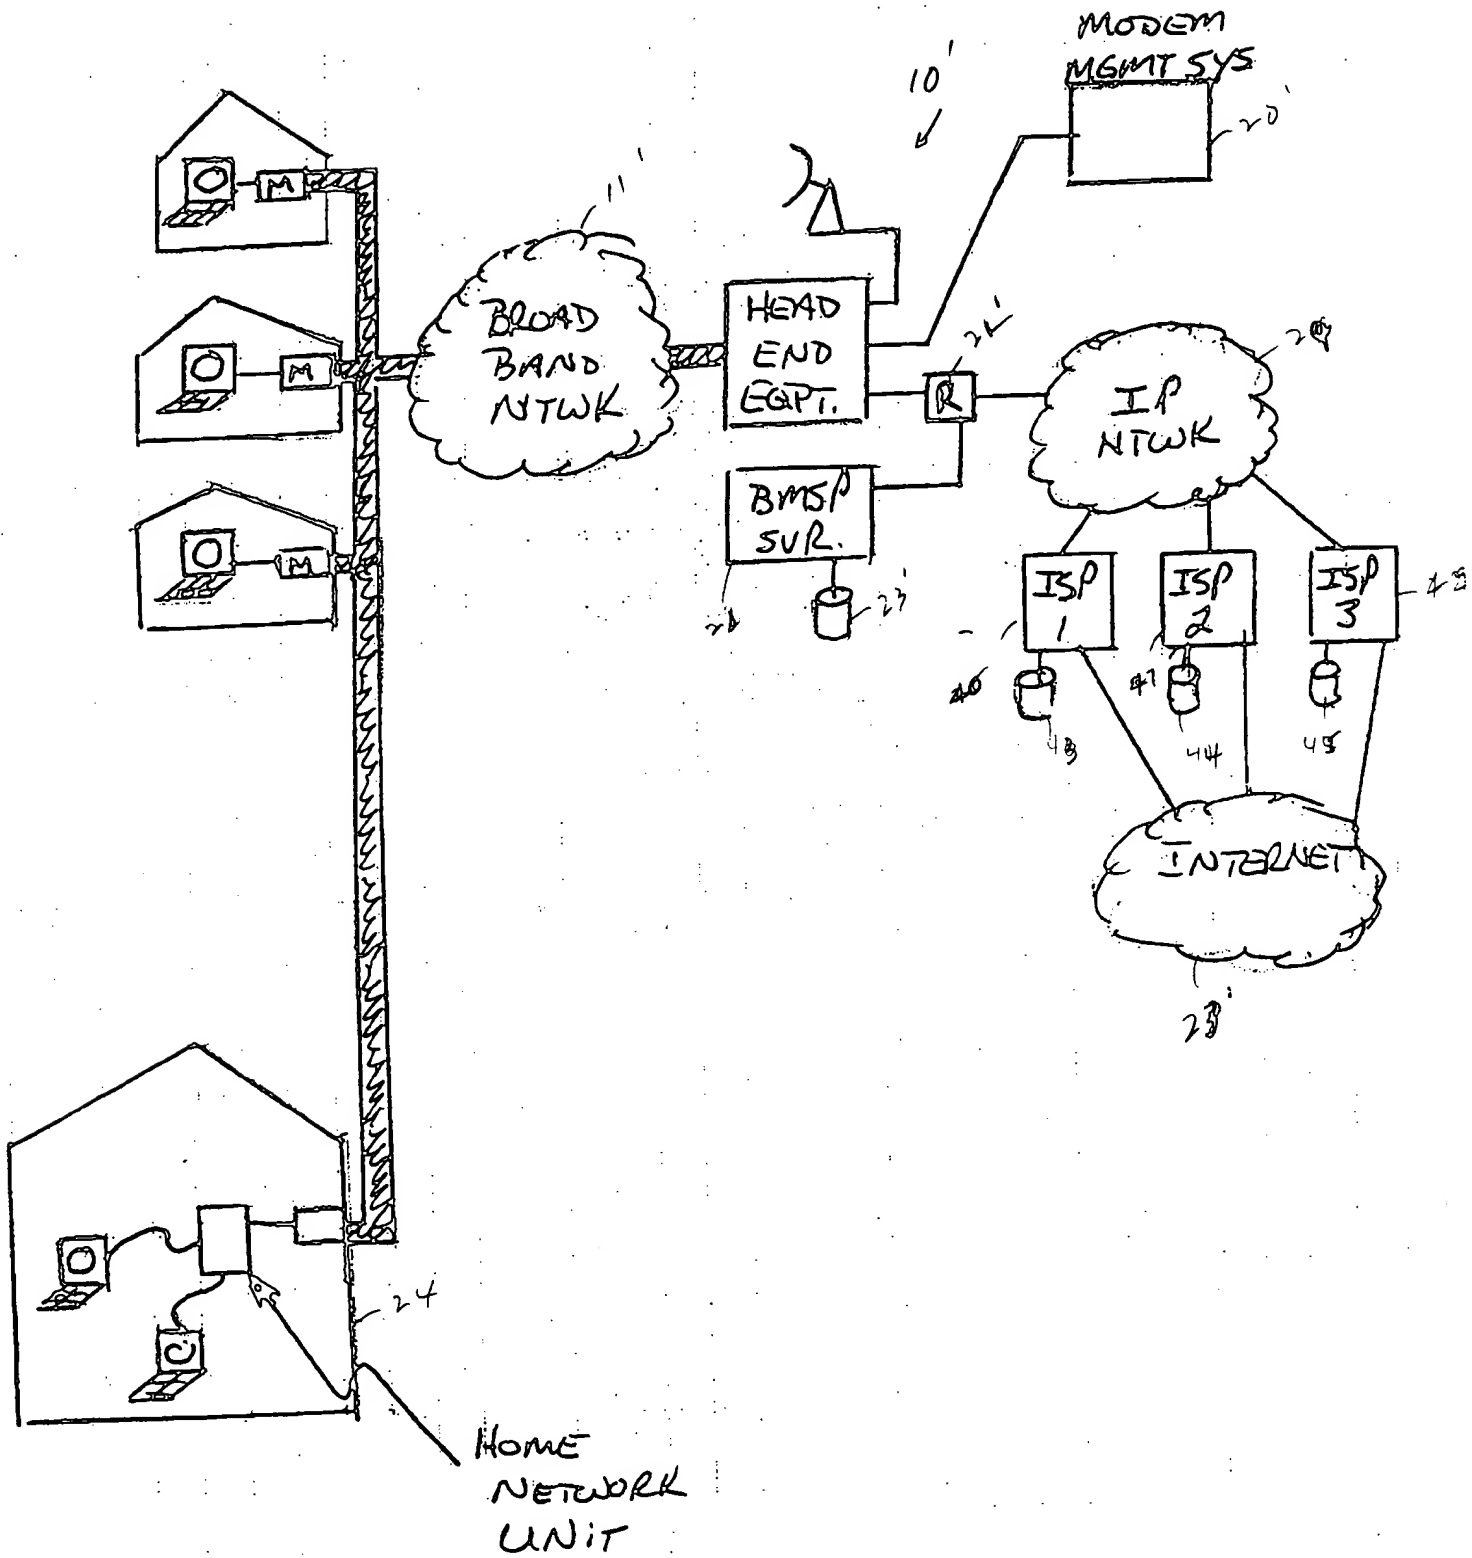 MODEM
MGMT SYS
10'
20'
11'
M
BROAD
BAND
NTWK
HEAD
END
EQPT.
R
IP
NTWK
M
BMSP
SVR.
23'
M
ISP
1
ISP
2
ISP
3
44
45
INTERNET
24
HOME
NETWORK
UNIT